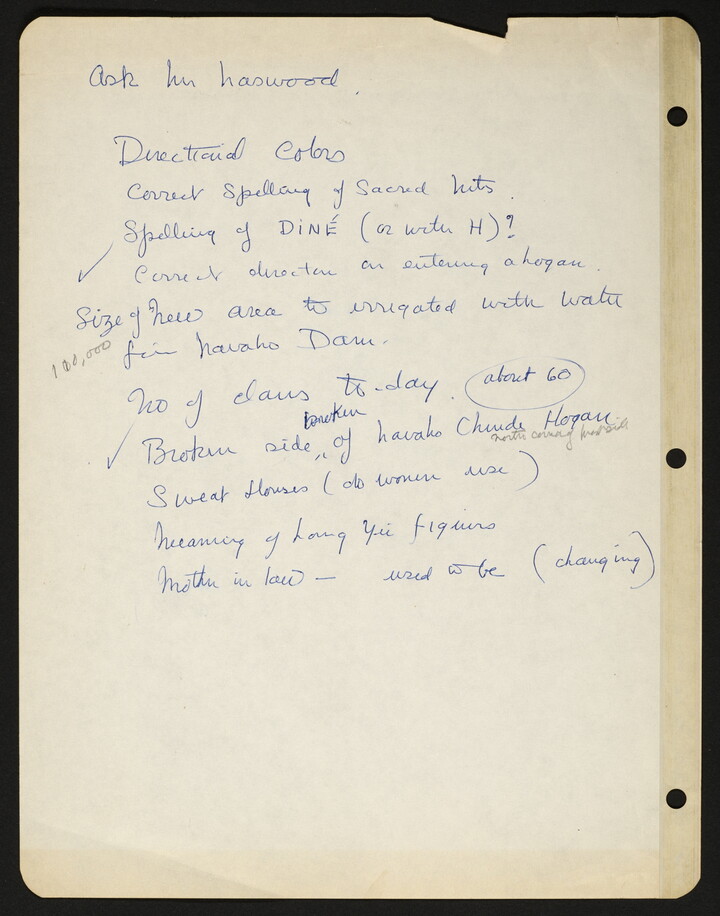 Ask Mr Haswood.
Directional Colors
Correct Spelling of Sacred Mts.
Spelling of DiNÉ (or with H)?
Correct direction on entering a hogan.
Size of New area to irrigated with water
100,000
from Navaho Dam.
No of clans to-day. about 60
broken
Broken side, " of Navaho Chinde Hogan
north corner of
Sweat Houses (do women use)
Meaning of Long Yei figures
Mother in law — used to be (changing)